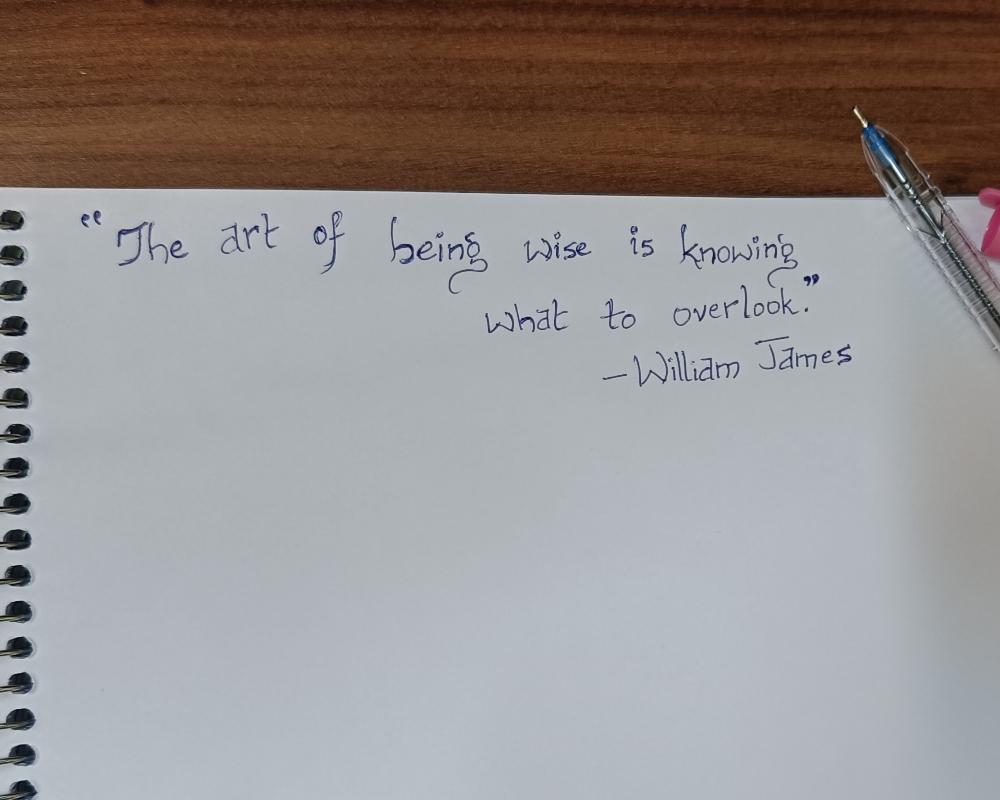 “The art of being wise is knowing
what to overlook.”
–William James